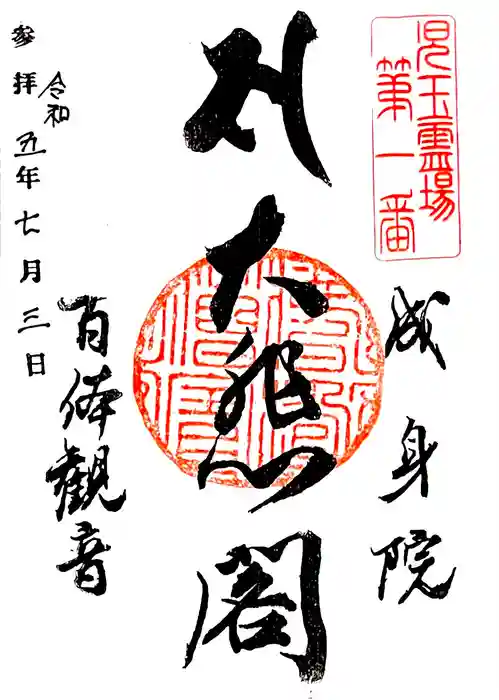 児玉霊場
第一番
成身院
大悲閣
百体觀音
令和
参拝 五年七月三日